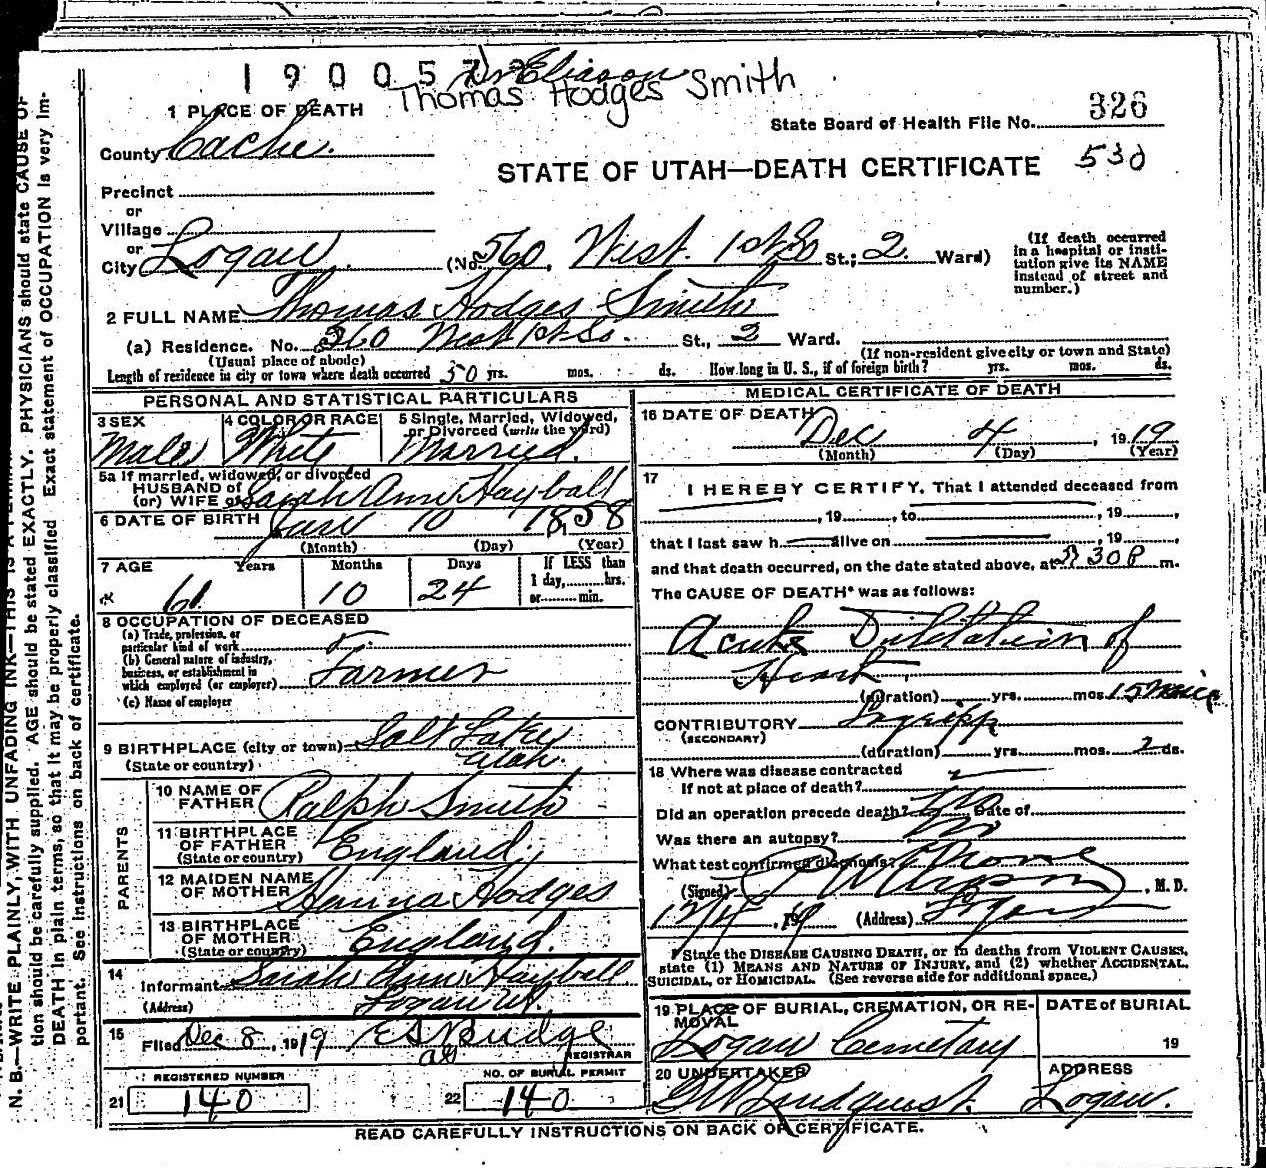 190057
Dr Eliason
Thomas Hodges Smith
1 PLACE OF DEATH
State Board of Health File No. 326
County Cache.
STATE OF UTAH—DEATH CERTIFICATE 530
Precinct
or
Village
or
City Logan (No. 560, West 1st So St.; 2. Ward)
(If death occurred in a hospital or institution give its NAME instead of street and number.)
2 FULL NAME Thomas Hodges Smith
(a) Residence. No. 360 West 1st So. St., 2 Ward.
(Usual place of abode) (If non-resident give city or town and State)
Length of residence in city or town where death occurred 50 yrs. mos. ds. How long in U. S., if of foreign birth? yrs. mos. ds.
PERSONAL AND STATISTICAL PARTICULARS
3 SEX Male
4 COLOR OR RACE White
5 Single, Married, Widowed, or Divorced (write the word) Married.
5a If married, widowed, or divorced
HUSBAND of
(or) WIFE of Sarah Ann Hayball
6 DATE OF BIRTH Jan 10 1858
(Month) (Day) (Year)
7 AGE Years Months Days If LESS than
61 10 24 1 day, hrs.
or min.
8 OCCUPATION OF DECEASED
(a) Trade, profession, or particular kind of work
(b) General nature of industry, business, or establishment in which employed (or employer) Farmer
(c) Name of employer
9 BIRTHPLACE (city or town) Salt Lake
(State or country) Utah.
PARENTS
10 NAME OF FATHER Ralph Smith
11 BIRTHPLACE OF FATHER England.
(State or country)
12 MAIDEN NAME OF MOTHER Hanna Hodges
13 BIRTHPLACE OF MOTHER England.
(State or country)
14 Informant Sarah Ann Hayball
(Address) Logan Ut.
15 Filed Dec 8, 1919 E S Budge
REGISTRAR
REGISTERED NUMBER NO. OF BURIAL PERMIT
21 140 22 140
MEDICAL CERTIFICATE OF DEATH
16 DATE OF DEATH Dec 4, 1919
(Month) (Day) (Year)
17 I HEREBY CERTIFY, That I attended deceased from
, 19 , to , 19 ,
that I last saw h alive on , 19 ,
and that death occurred, on the date stated above, at 30 P m.
The CAUSE OF DEATH* was as follows:
Acute Dilitation of
Heart.
(duration) yrs. mos. 15
CONTRIBUTORY
(SECONDARY)
(duration) yrs. mos. 2 ds.
18 Where was disease contracted
If not at place of death?
Did an operation precede death? No Date of
Was there an autopsy? No
What test confirmed diagnosis? None
(Signed) , M. D.
, 19 (Address) Logan
* State the DISEASE CAUSING DEATH, or in deaths from VIOLENT CAUSES,
state (1) MEANS AND NATURE OF INJURY, and (2) whether ACCIDENTAL,
SUICIDAL, or HOMICIDAL. (See reverse side for additional space.)
19 PLACE OF BURIAL, CREMATION, OR REMOVAL DATE of BURIAL
Logan Cemetary 19
20 UNDERTAKER ADDRESS
G W Lindquist. Logan.
READ CAREFULLY INSTRUCTIONS ON BACK OF CERTIFICATE.
N. B.—WRITE PLAINLY, WITH UNFADING INK—THIS IS A
tion should be carefully supplied. AGE should be stated EXACTLY. PHYSICIANS should state CAUSE OF
DEATH in plain terms, so that it may be properly classified. Exact statement of OCCUPATION is very im-
portant. See instructions on back of certificate.